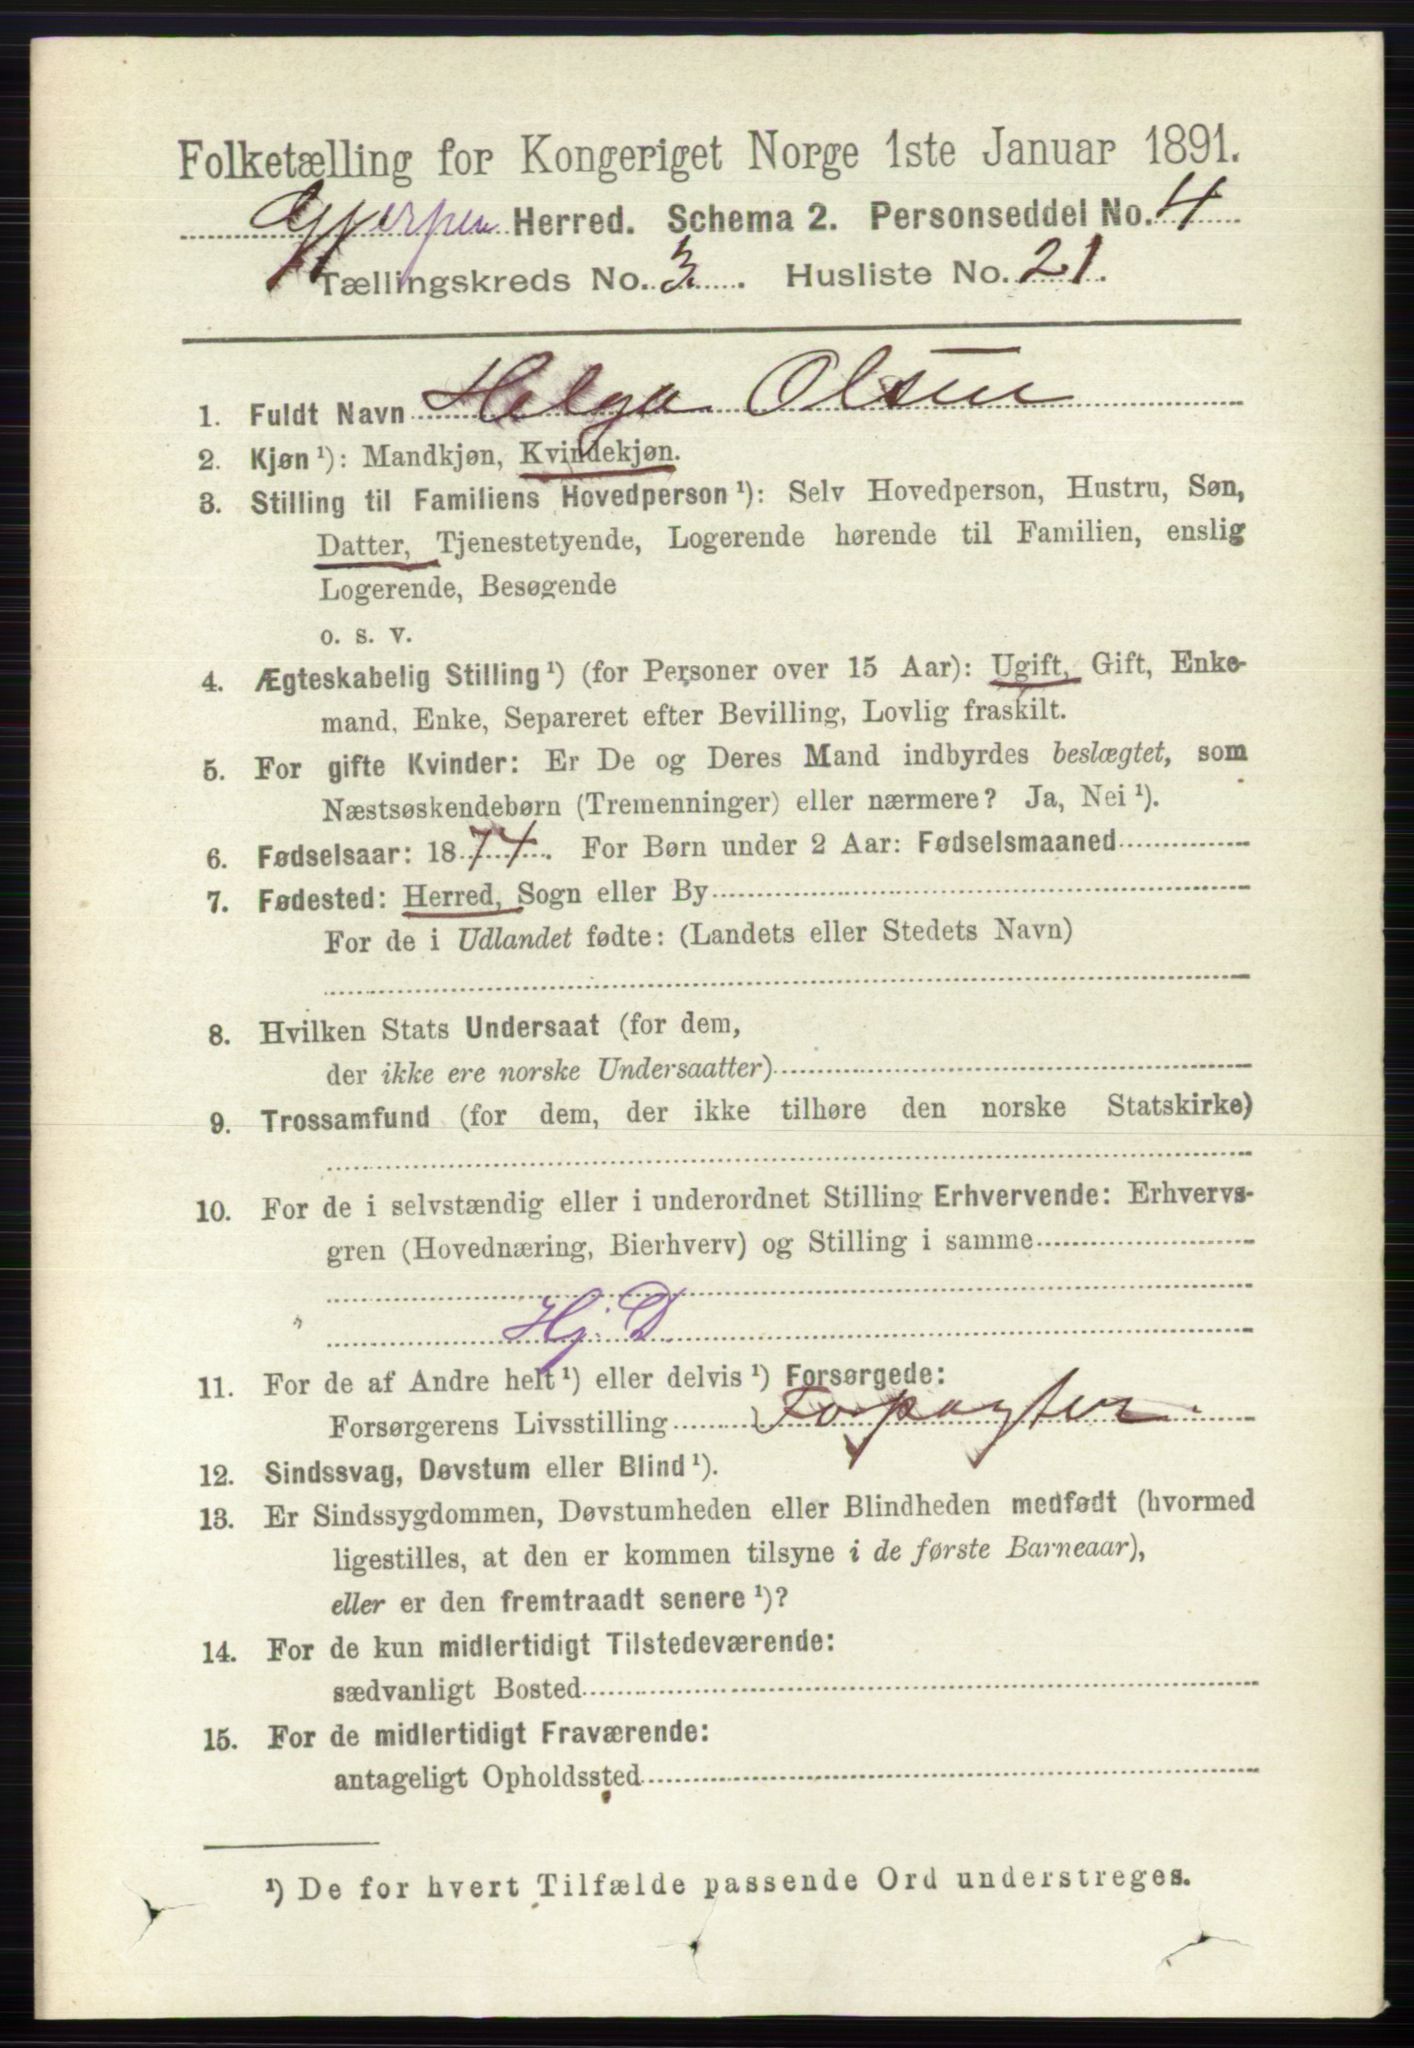 Folketælling for Kongeriget Norge 1ste Januar 1891.
Gjerpen Herred. Schema 2. Personseddel No. 4
Tællingskreds No. 3. Husliste No. 21.
1. Fuldt Navn Helga Olsen
2. Kjøn ¹): Mandkjøn, Kvindekjøn.
3. Stilling til Familiens Hovedperson ¹): Selv Hovedperson, Hustru, Søn,
Datter, Tjenestetyende, Logerende hørende til Familien, enslig
Logerende, Besøgende
o. s. v.
4. Ægteskabelig Stilling ¹) (for Personer over 15 Aar): Ugift, Gift, Enke-
mand, Enke, Separeret efter Bevilling, Lovlig fraskilt.
5. For gifte Kvinder: Er De og Deres Mand indbyrdes beslægtet, som
Næstsøskendebørn (Tremenninger) eller nærmere? Ja, Nei ¹).
6. Fødselsaar: 1874. For Børn under 2 Aar: Fødselsmaaned
7. Fødested: Herred, Sogn eller By
For de i Udlandet fødte: (Landets eller Stedets Navn)
8. Hvilken Stats Undersaat (for dem,
der ikke ere norske Undersaatter)
9. Trossamfund (for dem, der ikke tilhøre den norske Statskirke)
10. For de i selvstændig eller i underordnet Stilling Erhvervende: Erhvervs-
gren (Hovednæring, Bierhverv) og Stilling i samme
Hj. D
11. For de af Andre helt ¹) eller delvis ¹) Forsørgede:
Forsørgerens Livsstilling Forpagter.
12. Sindssvag, Døvstum eller Blind ¹).
13. Er Sindssygdommen, Døvstumheden eller Blindheden medfødt (hvormed
ligestilles, at den er kommen tilsyne i de første Barneaar),
eller er den fremtraadt senere ¹)?
14. For de kun midlertidigt Tilstedeværende:
sædvanligt Bosted
15. For de midlertidigt Fraværende:
antageligt Opholdssted
¹) De for hvert Tilfælde passende Ord understreges.